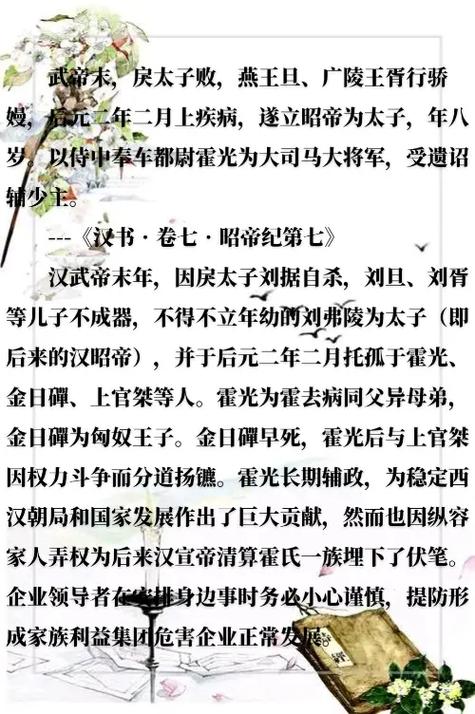 武帝末，戾太子败，燕王旦、广陵王胥行骄
嫚，后元二年二月上疾病，遂立昭帝为太子，年八
岁。以侍中奉车都尉霍光为大司马大将军，受遗诏
辅少主。
---《汉书·卷七·昭帝纪第七》
汉武帝末年，因戾太子刘据自杀，刘旦、刘胥
等儿子不成器，不得不立年幼的刘弗陵为太子（即
后来的汉昭帝），并于后元二年二月托孤于霍光、
金日磾、上官桀等人。霍光为霍去病同父异母弟，
金日磾为匈奴王子。金日磾早死，霍光后与上官桀
因权力斗争而分道扬镳。霍光长期辅政，为稳定西
汉朝局和国家发展作出了巨大贡献，然而也因纵容
家人弄权为后来汉宣帝清算霍氏一族埋下了伏笔。
企业领导者在安排身边事时务必小心谨慎，提防形
成家族利益集团危害企业正常发展。